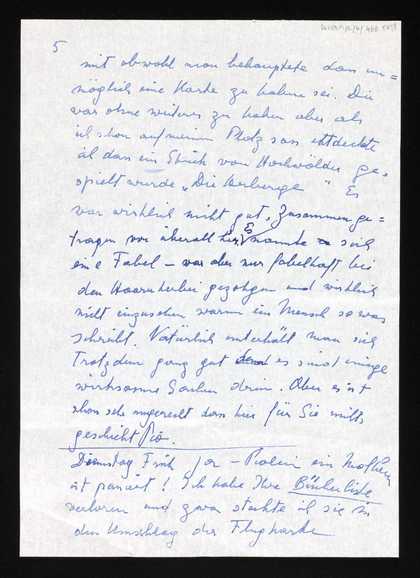 5
mit obwohl man behauptete dass un=
möglich eine Karte zu haben sei. Die
war ohne weiteres zu haben aber als
ich schon auf meinem Platz sass entdeckte
ich dass ein Stück von Hochwälder ge=
spielt wurde „Die Herberge" Es
war wirklich nicht gut, Zusammenge=
tragen von überall her, Es nannte sich
eine Fabel – war aber nur fabelhaft bei
den Haaren herbei gezogen und wirklich
nicht einzusehen warum ein Mensch so was
schreibt. Natürlich unterhält man sich
trotzdem ganz gut denn es sind einige
wirksame Sachen drin. Aber es ist
schon sehr ungerecht dass hier für Sie nichts
geschieht
Dienstag Früh ein
ist passiert! Ich habe Ihre Bücherliste
verloren und zwar steckte ich sie in
den Umschlag der Flugkarte